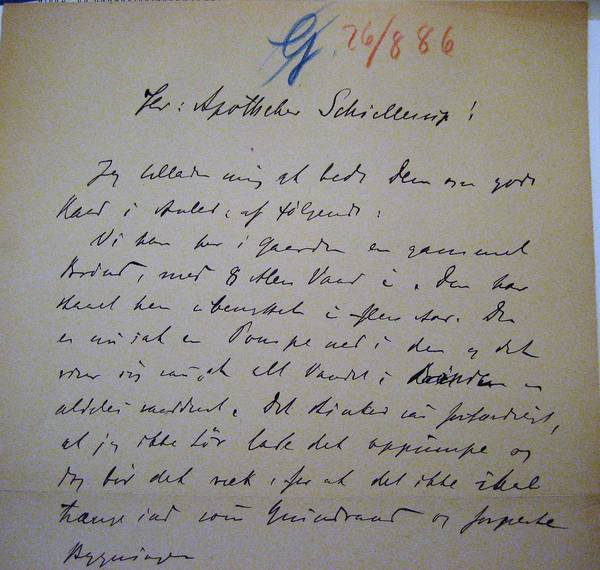 G. 26/8 86
Hr: Apotheker Schiellerup!
Jeg tillader mig at bede Dem om gode
Raad i Anled. af følgende:
Vi har her i Gaarden en gammel
Brønd, med 8 Alen Vand i. Den har
staaet hen ubenyttet i flere Aar. Der
er nu sat en Pumpe ned i den og det
viser sig nu, at alt Vandet i Brønden er
aldeles raaddent. Det stinker saa forfærdeligt,
at jeg ikke tør lade det oppumpe og
dog bør det væk, for at det ikke skal
trænge ind som Grundvand og forpeste
Bygningen